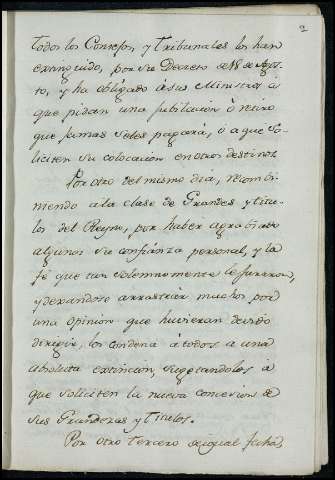 2
todos los Consejos, y Tribunales los han
extinguido, por su Decreto de 18 de Agos-
to, y ha obligado à sus Ministros à
que pidan una jubilacion ò retiro
que jamas se les pagará, ò a que so-
liciten su colocacion en otros destinos.
Por otro del mismo dia,
miendo à la clase de Grandes y titu-
los del Reyno, por haber agraviado
algunos su confianza personal, y la
fé que tan solemnemente le juraron,
y dexandose arrastrar muchos, por
una opinion que huvieran devido
dirigir, los condena à todos a una
absoluta extincion, sugetandolos à
que soliciten la nueva concesion de
sus Grandezas y Titulos.
Por otro tercero de igual fecha,